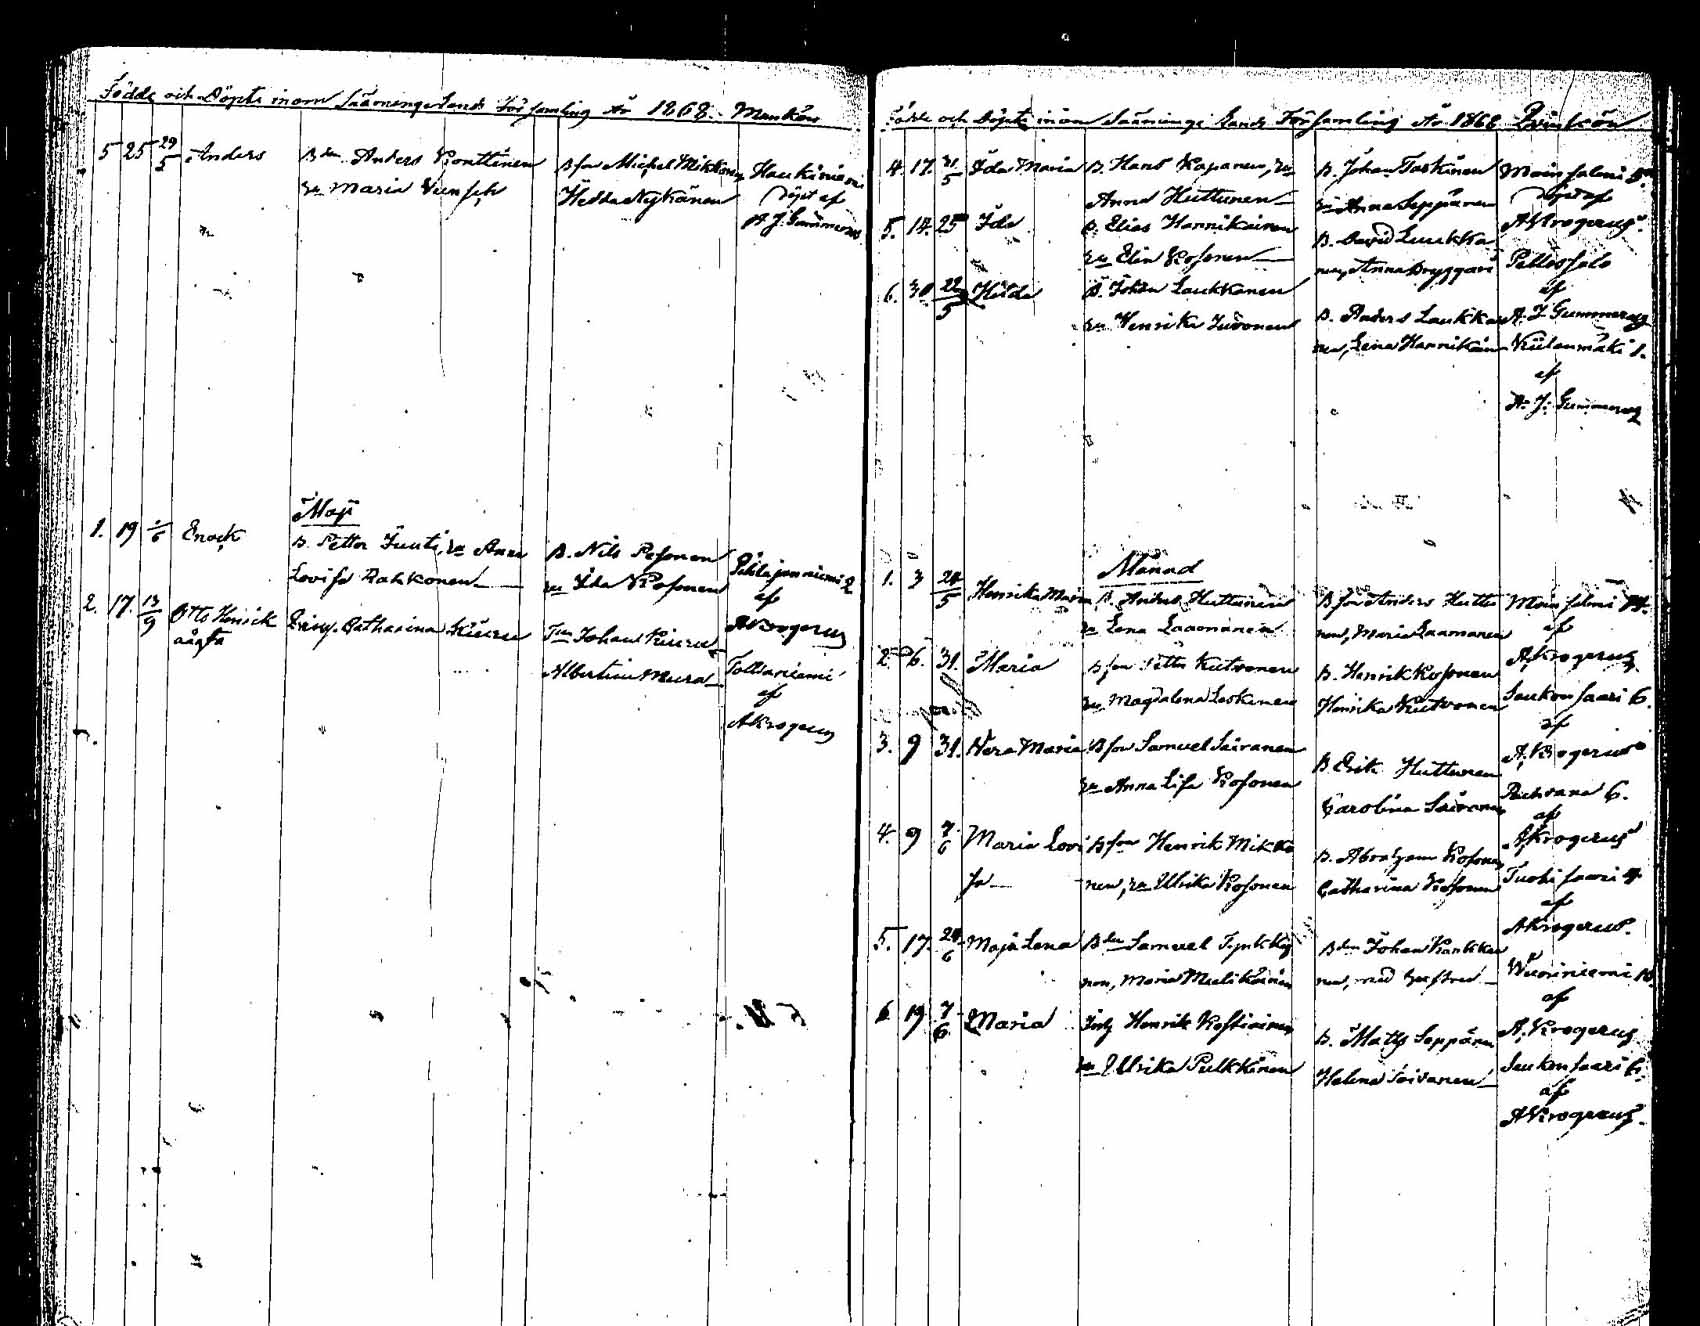 Födde och Döpte inom Sääminge Lands Församling År 1868. Mankön
5 25 29/5 Anders
Bdn Anders Konttinen
Maria Wunsch
Bfor Michel Mikkonen
Hedda Nykänen
Haukiniemi
döpt af
A. J. Gummerus
Maji
1. 19 Enock
B. Petter Juuti, Anna
Lovisa Rahkonen
B. Nils Pesonen
Ida Kosonen
Pihlajaniemi 2
af
AKrogerus
2. 17. 13/9 Otto Henrik
oägta
Catharina Kiuru
Johan Kiuru
Albertina Mura
Tolvaniemi
af
AKrogerus
Födde och Döpte inom Sääminge Lands Församling År 1868 Qvinkön
4. 17. 31/5 Ida Maria
B. Hans Kapanen,
Anna Huttunen
B. Johan Taskinen
Anna Seppänen
Moinsalmi
döpt af
AKrogerus.
5. 14. 25 Ida
B. Elias Hannikainen
Elin Kosonen
B. David Luukko
nen, Anna Bryggari
Pellossalo
af
A. J. Gummerus
6. 30 22/5 Hilda
B. Johan Laukkanen
Henrika Juvonen
B. Anders Laukka
nen, Lena Hannikain
1.
af
A. J. Gummerus
Månad
1. 3 24/5 Henrika Maria
B. Anders Huttunen
Lena Laamanen
Bfor Anders Huttu
nen, Maria Laamanen
Moinsalmi
af
AKrogerus
2. 6. 31. Maria
Bfor Petter Kutvonen
Magdalena Leskinen
B. Henrik Kosonen
Henrika Kutvonen
Laukonsaari 6.
af
A. Krogerus
3. 9 31. Wera Maria
Bfor Samuel Sairanen
Anna Lisa Kosonen
B. Erik Huttunen
Carolina Sairanen
6.
af
AKrogerus
4. 9 7/6 Maria Lovi
sa
Bfor Henrik Mikko
nen, Ulrika Kosonen
B. Abraham Kosonen
Catharina Kosonen
Tuohisaari 4
af
AKrogerus.
5. 17. 24/6 Maja Lena
Bdn Samuel Tynkky
nen, Maria Muikkinen
Bdn Johan Karkkai
nen, med hustru
Wuoriniemi 10.
af
A. Krogerus
6 19 7/6 Maria
Henrik Kostiainen
Ulrika Pulkkinen
B. Matts Seppänen
Helena Loivanen
Laukonsaari 6.
af
AKrogerus.